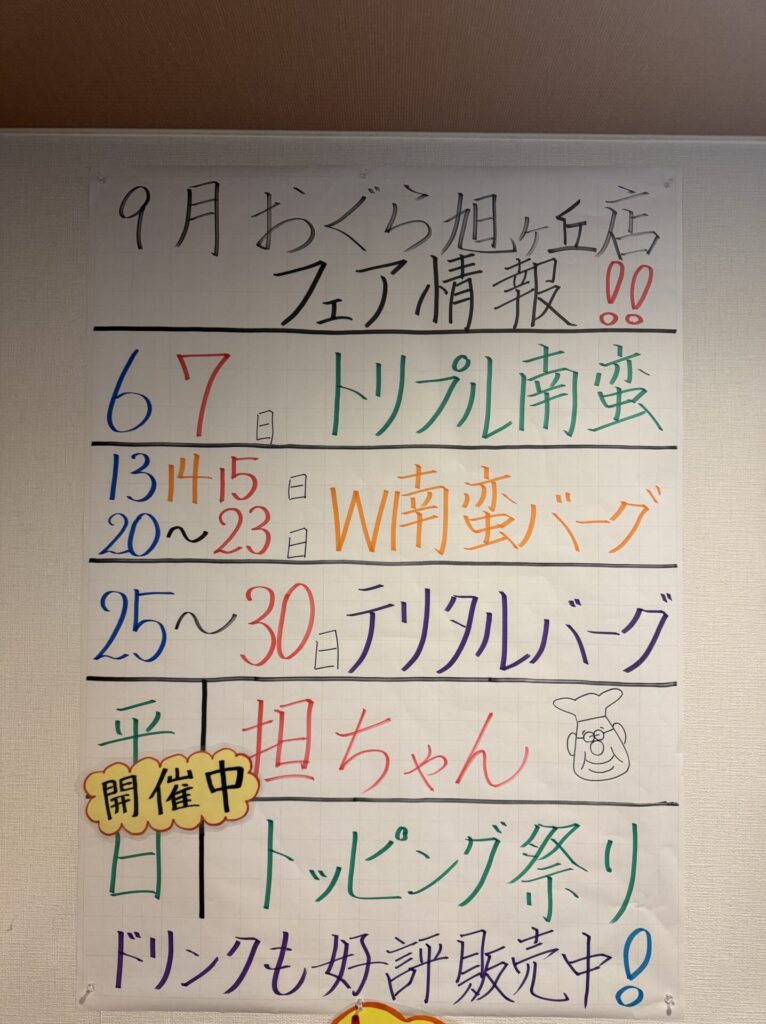 9月 おぐら旭ヶ丘店
フェア情報!!
6 7日 トリプル南蛮
13 14 15日
20〜23日
W南蛮バーグ
25〜30日 テリタルバーグ
平日
開催中
担ちゃん
トッピング祭り
ドリンクも好評販売中!